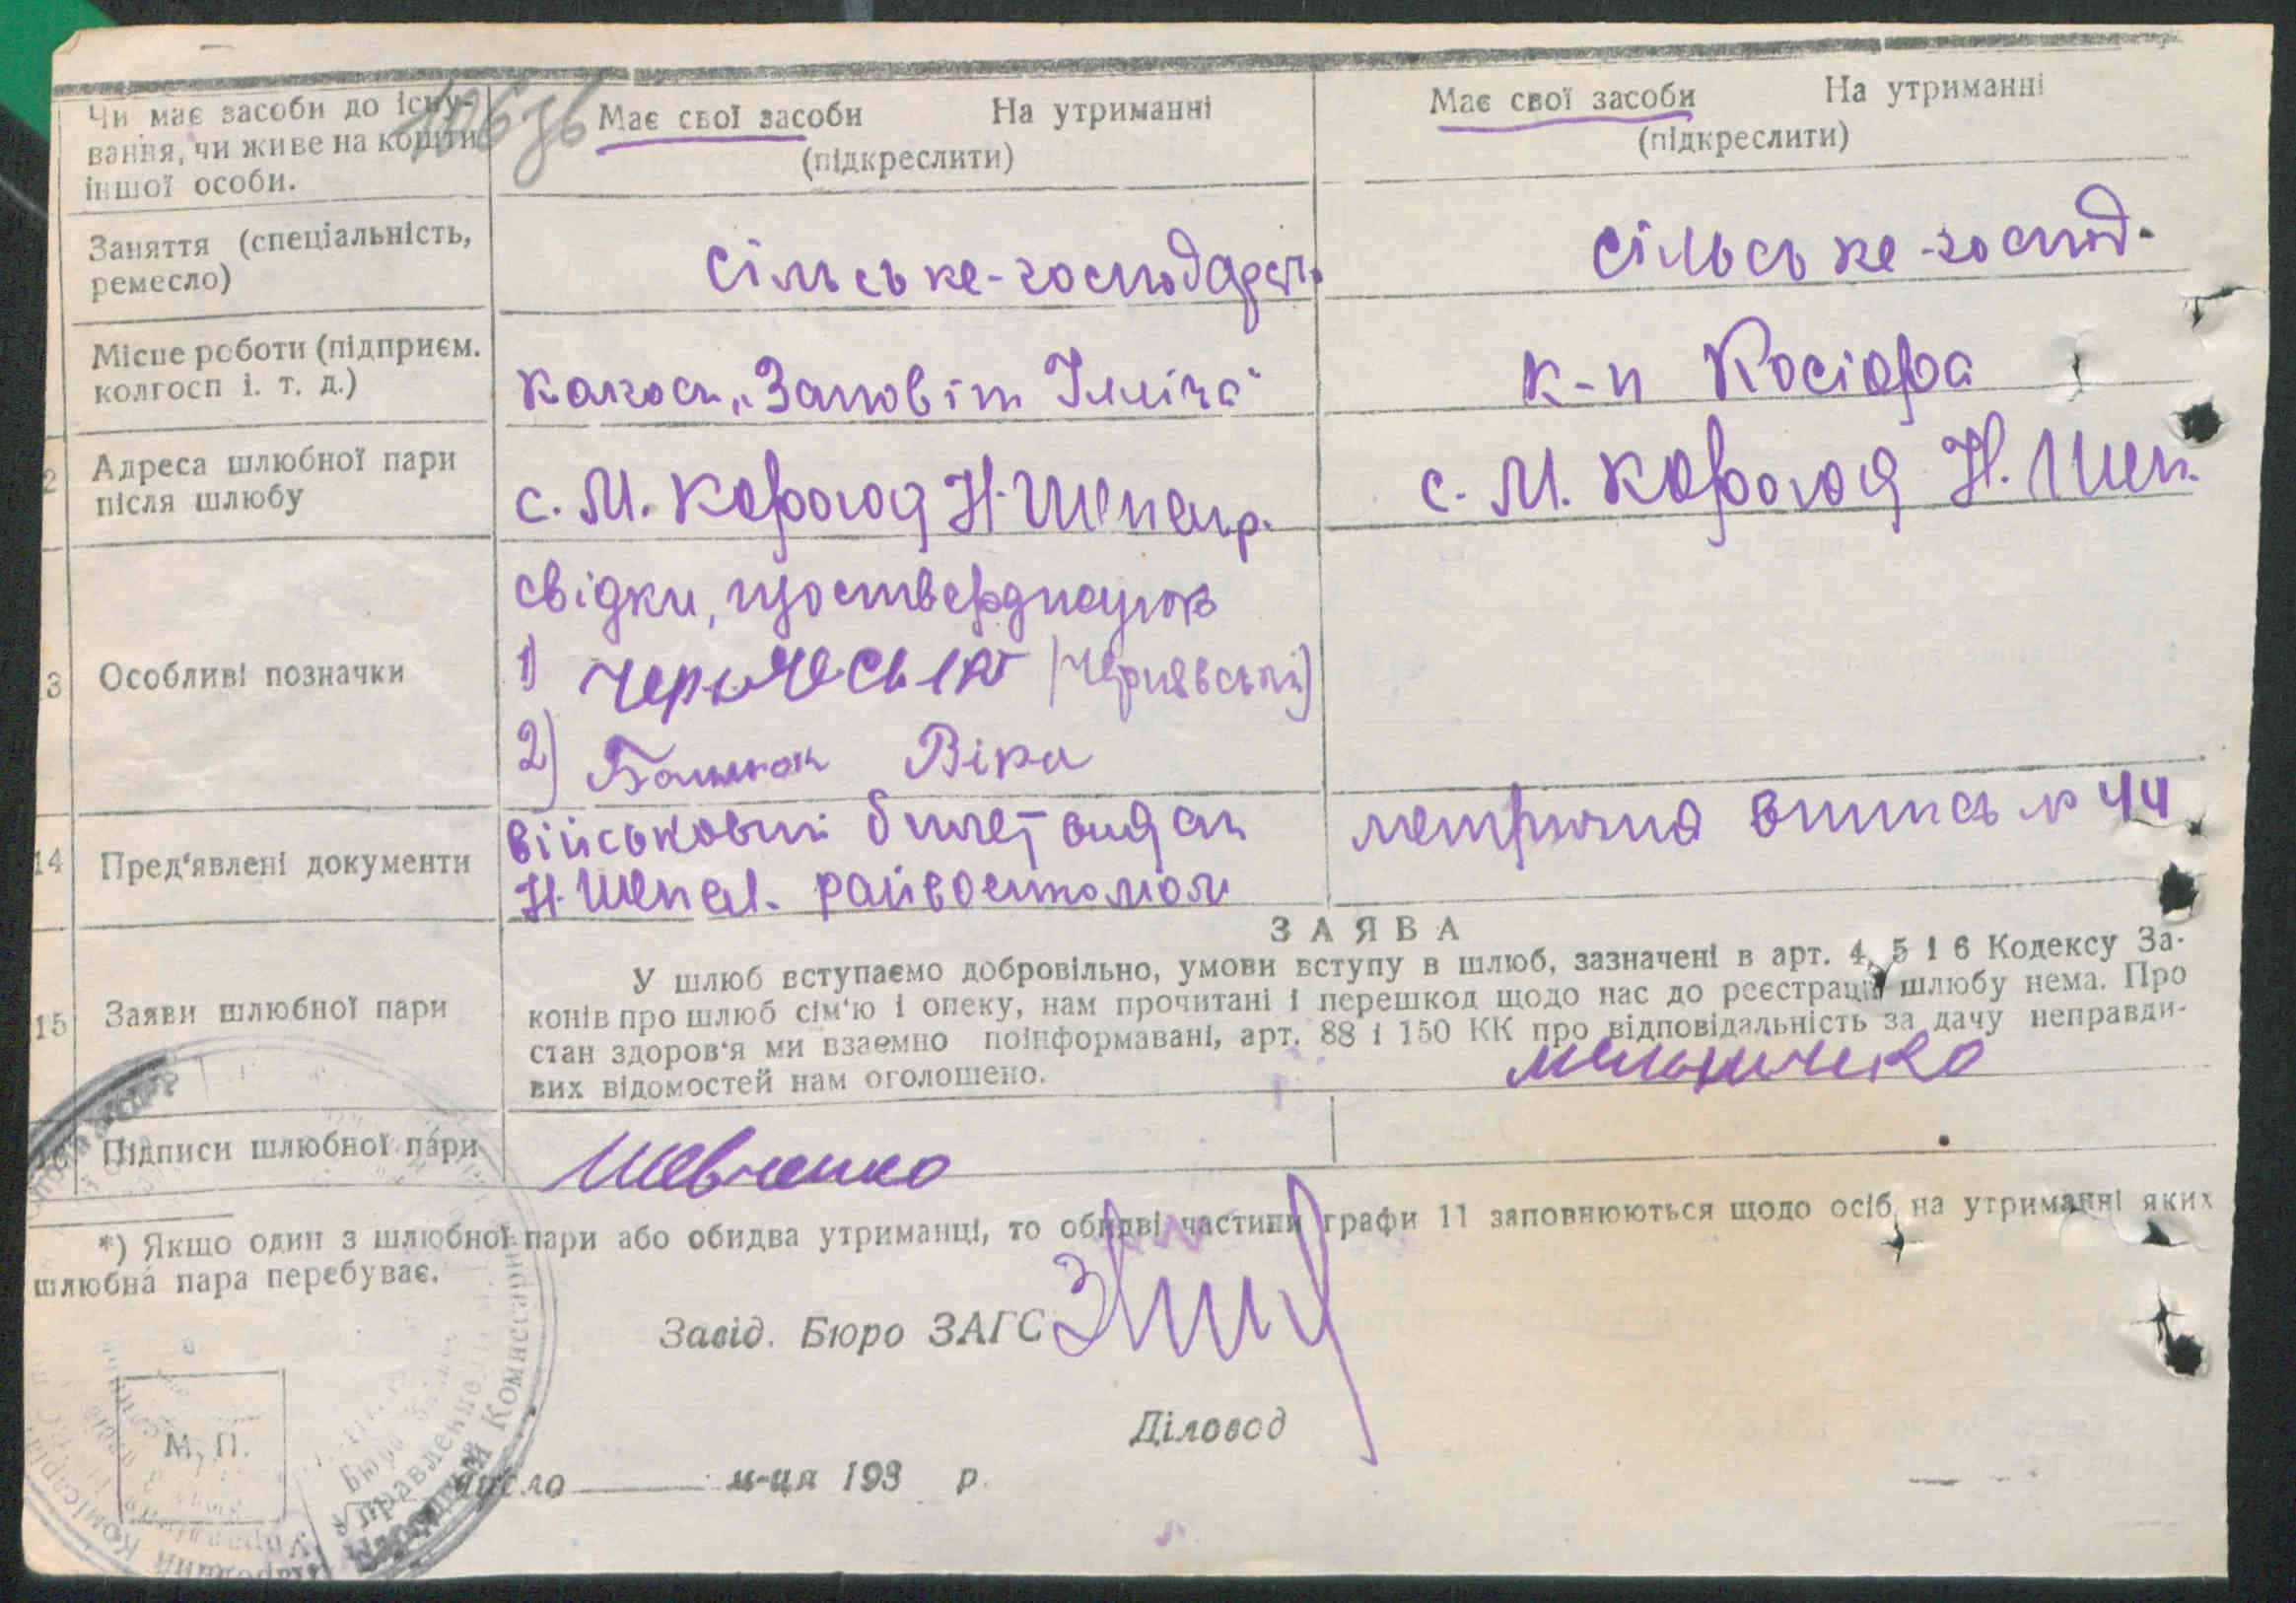 Чи має засоби до існу-
вання, чи живе на кошти
іншої особи.
Має свої засоби На утриманні
(підкреслити)
Має свої засоби На утриманні
(підкреслити)
Заняття (спеціальність,
ремесло)
Сільське-господарст.
Сільське-господ.
Місце роботи (підприєм.
колгосп і. т. д.)
колгосп „Заповіт Ілліча"
к-п Косіора
Адреса шлюбної пари
після шлюбу
с. М. Карогод Н-Шепел.
с. М. Карогод Н. Шеп.
13 Особливі позначки
свідки, що стверджують
1) (Чернявський)
2) Віра
14 Пред'явлені документи
військовий білет видан
Н-Шепел. райвоєнкоматом
метрична випись № 44
15 Заяви шлюбної пари
ЗАЯВА
У шлюб вступаємо добровільно, умови вступу в шлюб, зазначені в арт. 4, 5 і 6 Кодексу За-
конів про шлюб сім'ю і опеку, нам прочитані і перешкод щодо нас до реєстрації шлюбу нема. Про
стан здоров'я ми взаємно поінформавані, арт. 88 і 150 КК про відповідальність за дачу неправди-
вих відомостей нам оголошено.
Мельниченко
16 Підписи шлюбної пари
Шевченко
*) Якщо один з шлюбної пари або обидва утриманці, то обидві частини графи 11 заповнюються щодо осіб на утриманні яких
шлюбна пара перебуває.
Завід. Бюро ЗАГС
Діловод
М. П.
число м-ця 193 р.